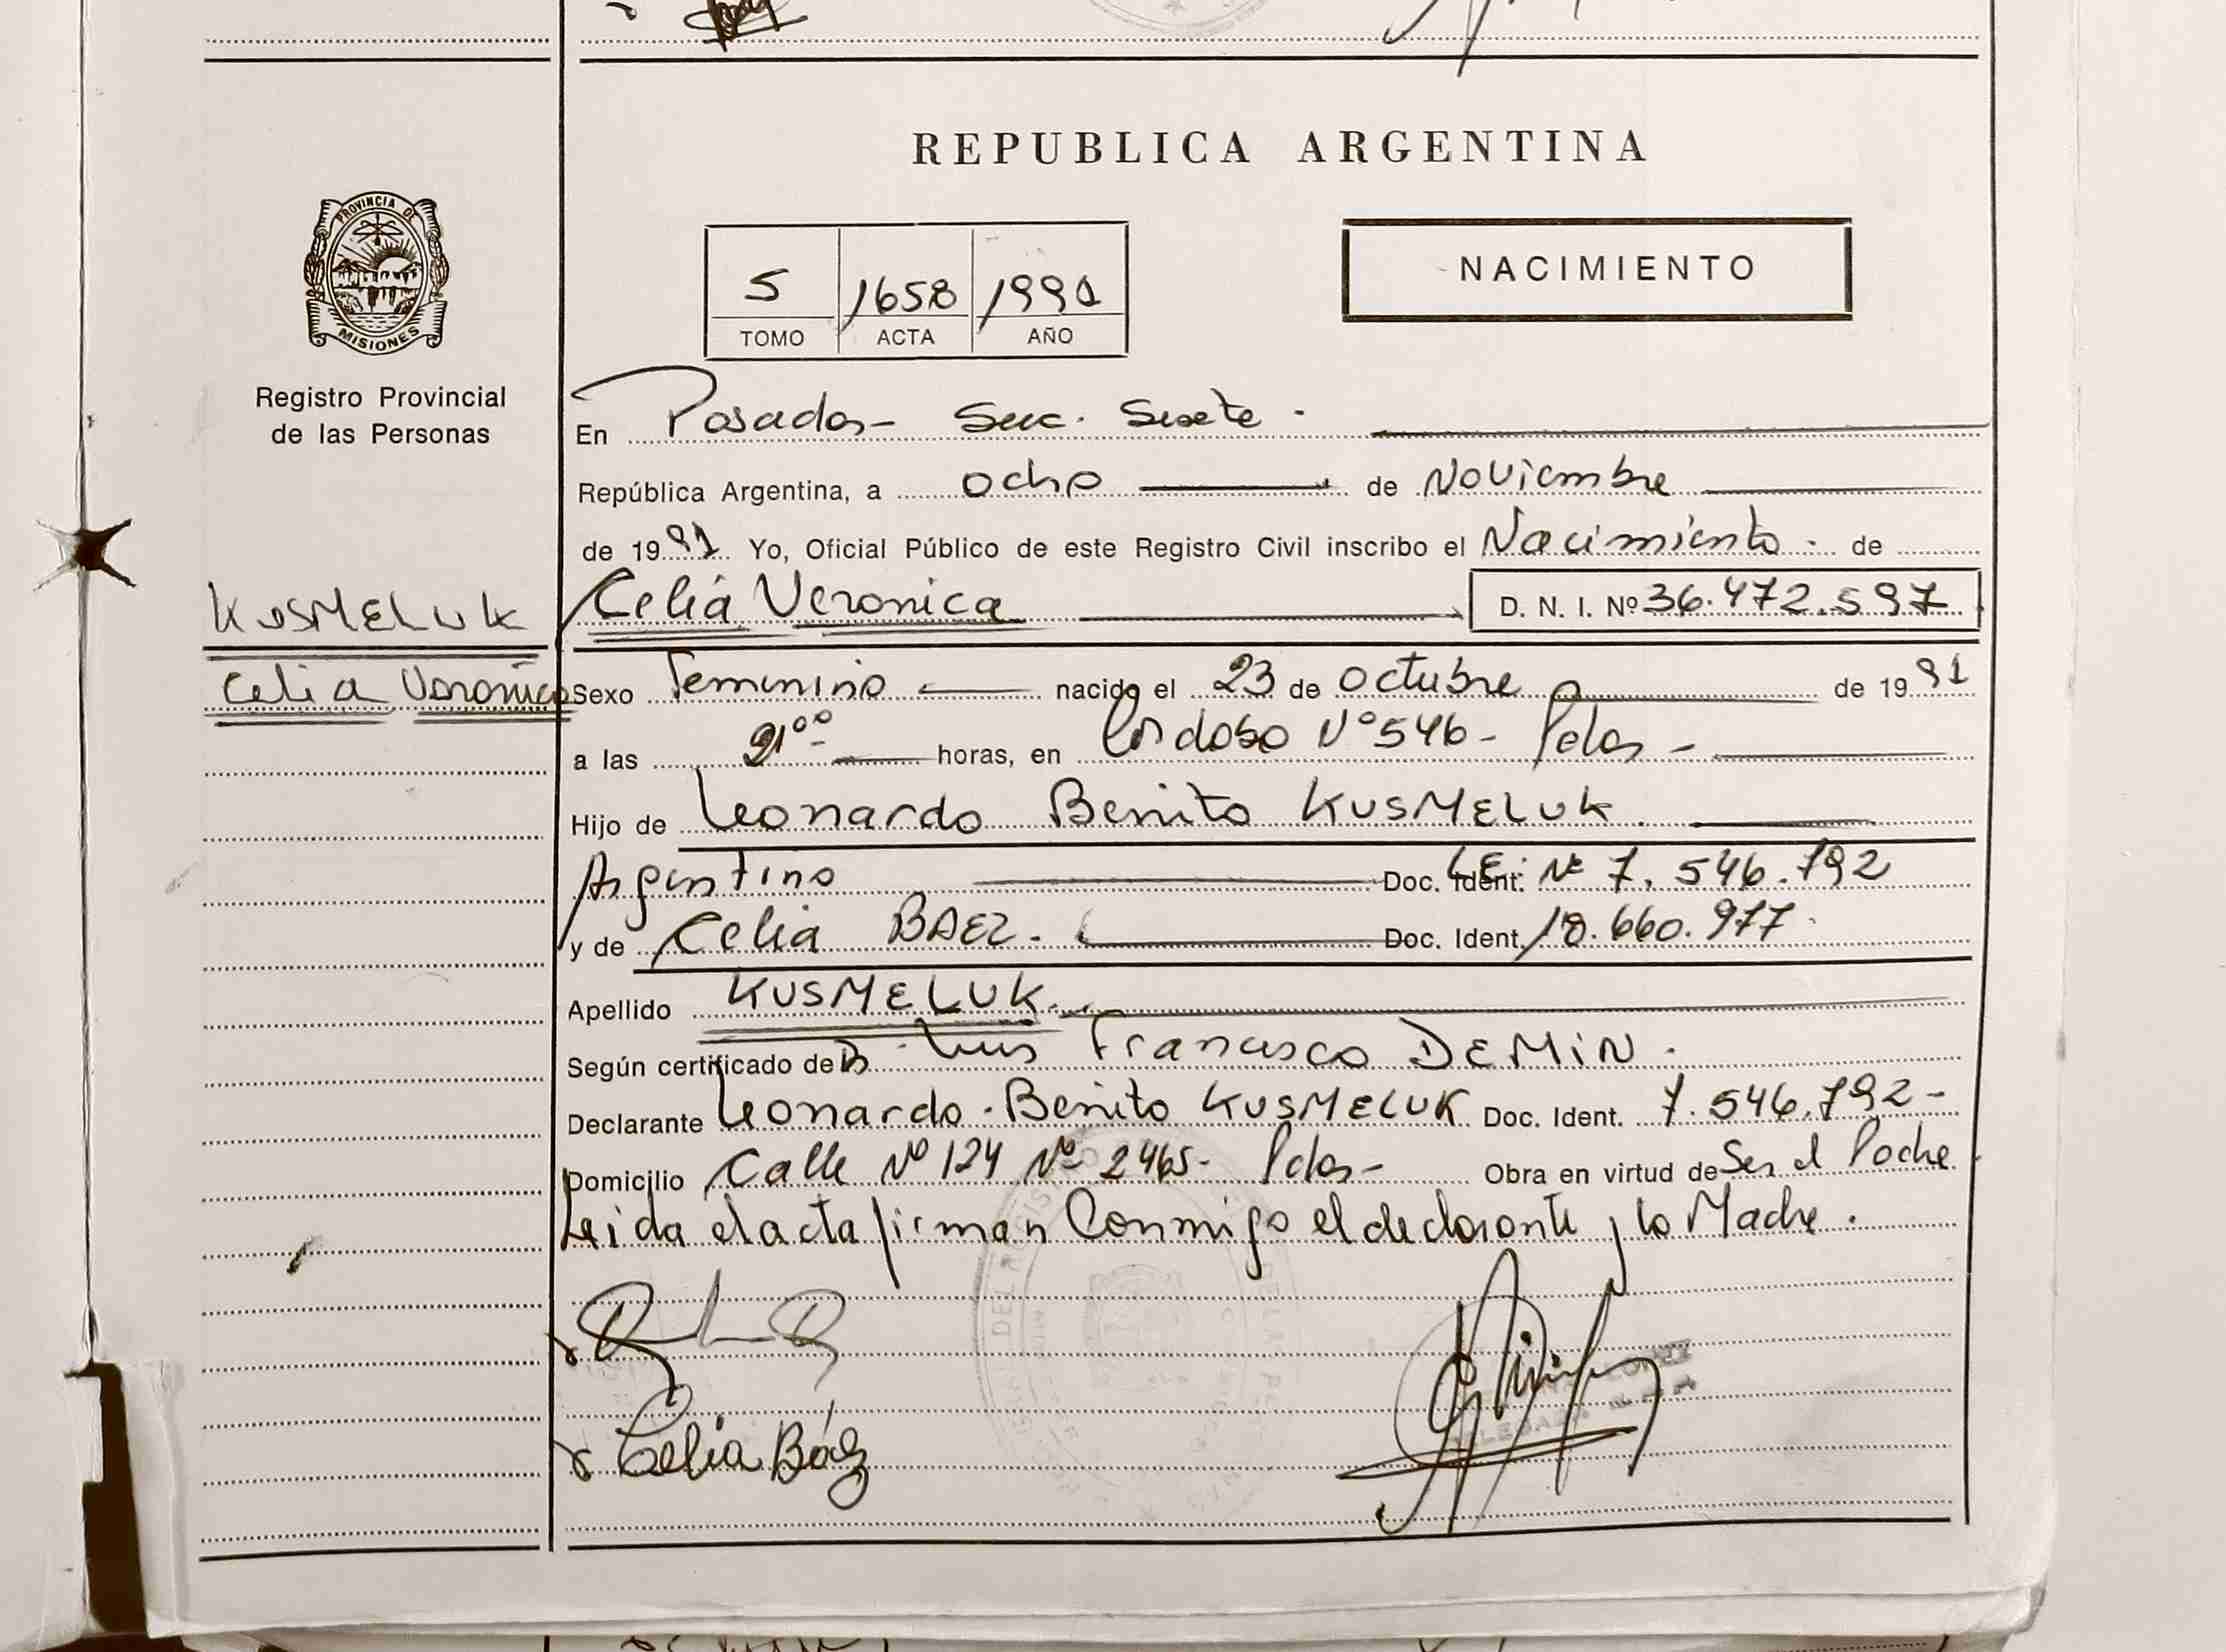 REPUBLICA ARGENTINA
PROVINCIA DE
MISIONES
Registro Provincial
de las Personas
5 1658 1991
TOMO ACTA AÑO
NACIMIENTO
En Posadas - Secc. Siete -
República Argentina, a ocho de Noviembre
de 1991 Yo, Oficial Público de este Registro Civil inscribo el Nacimiento - de
KUSMELUK
Celia Veronica D. N. I. Nº 36.472.597
Celia Veronica
Sexo Femenino nacido el 23 de Octubre de 1991
a las 21ºº horas, en Cardoso Nº 546 - Pdas -
Hijo de Leonardo Benito KUSMELUK.
Argentino Doc. Ident. L.E: Nº 7.546.792
y de Celia BAEZ. Doc. Ident. 18.660.977.
Apellido KUSMELUK.
Según certificado de Luis Francisco DEMIN.
Declarante Leonardo - Benito KUSMELUK Doc. Ident. 7.546.792 -
Domicilio Calle Nº 124 Nº 2465 - Pdas - Obra en virtud de Ser el Padre
Leida el acta firman Conmigo el declarante y la Madre.
Celia Báez